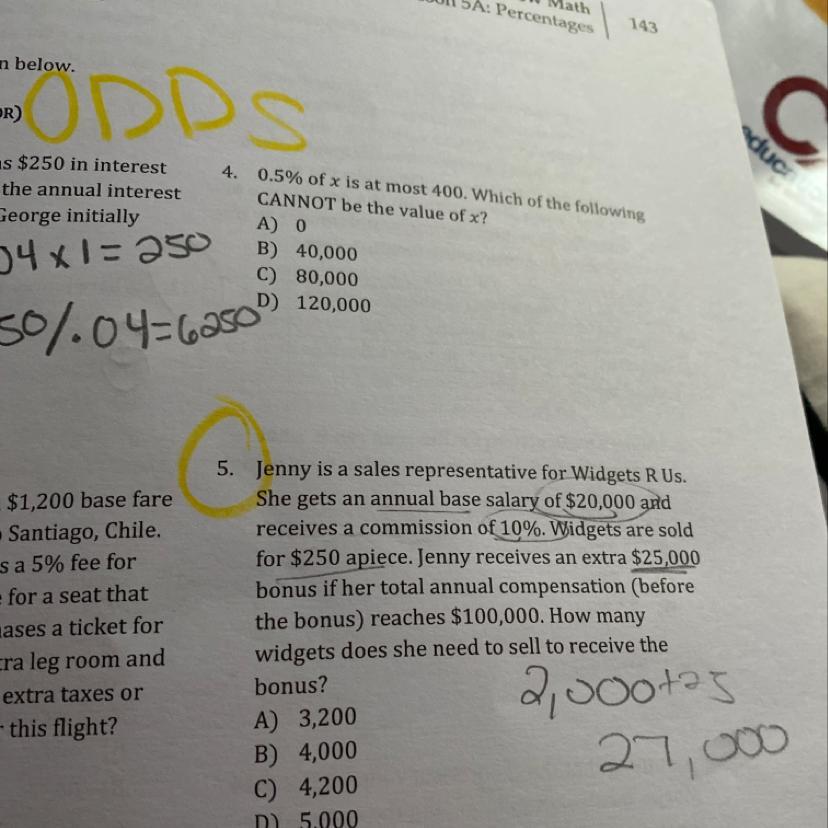 Math
5A: Percentages
143
below.
ODDS
$250 in interest
the annual interest
George initially
04 x 1 = 250
.04=6250
4. 0.5% of x is at most 400. Which of the following
CANNOT be the value of x?
A) 0
B) 40,000
C) 80,000
D) 120,000
$1,200 base fare
Santiago, Chile.
a 5% fee for
for a seat that
a ticket for
leg room and
extra taxes or
this flight?
5. Jenny is a sales representative for Widgets R Us.
She gets an annual base salary of $20,000 and
receives a commission of 10%. Widgets are sold
for $250 apiece. Jenny receives an extra $25,000
bonus if her total annual compensation (before
the bonus) reaches $100,000. How many
widgets does she need to sell to receive the
bonus?
A) 3,200
B) 4,000
C) 4,200
D) 5,000
2,000+25
27,000